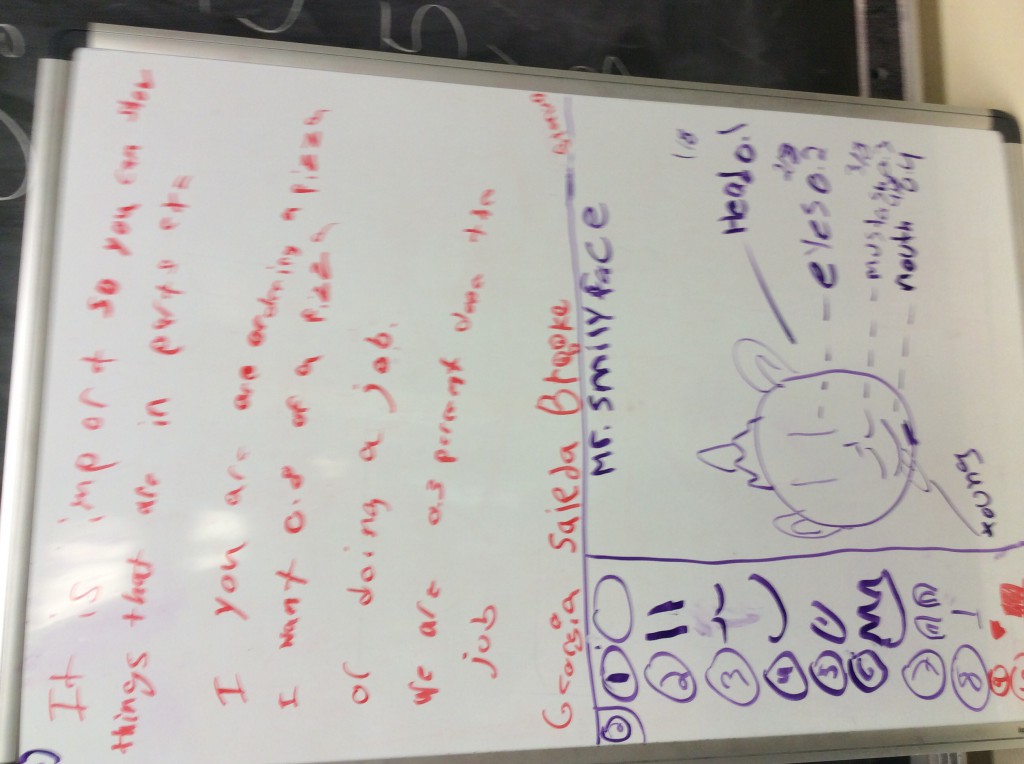 It is important so you can show
things that are in parts etc
I you are are ordering a pizza
I want 0.8 of a pizza
or doing a job.
We are 0.3 percent done the
job
Georgia Sajeda Brooke
Mr. smily face
1/8
Head 0.1
eyes 0.2
mouth 0.4
young
1
2
3
4
5
6
7
8
9